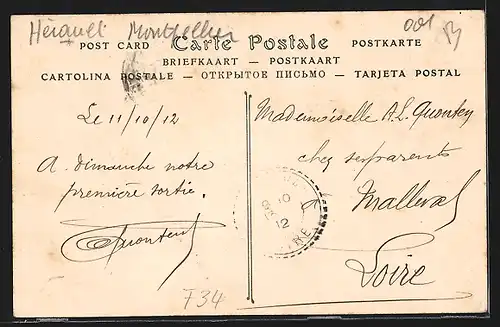 Hérault Montpellier
001
POST CARD Carte Postale POSTKARTE
BRIEFKAART — POSTKAART
CARTOLINA POSTALE — ОТКРЫТОЕ ПИСЬМО — TARJETA POSTAL
Le 11/10/12
A dimanche notre
première sortie.
Mademoiselle A.L. Quonten
chez ses parents
à
Malleval
Loire
F34